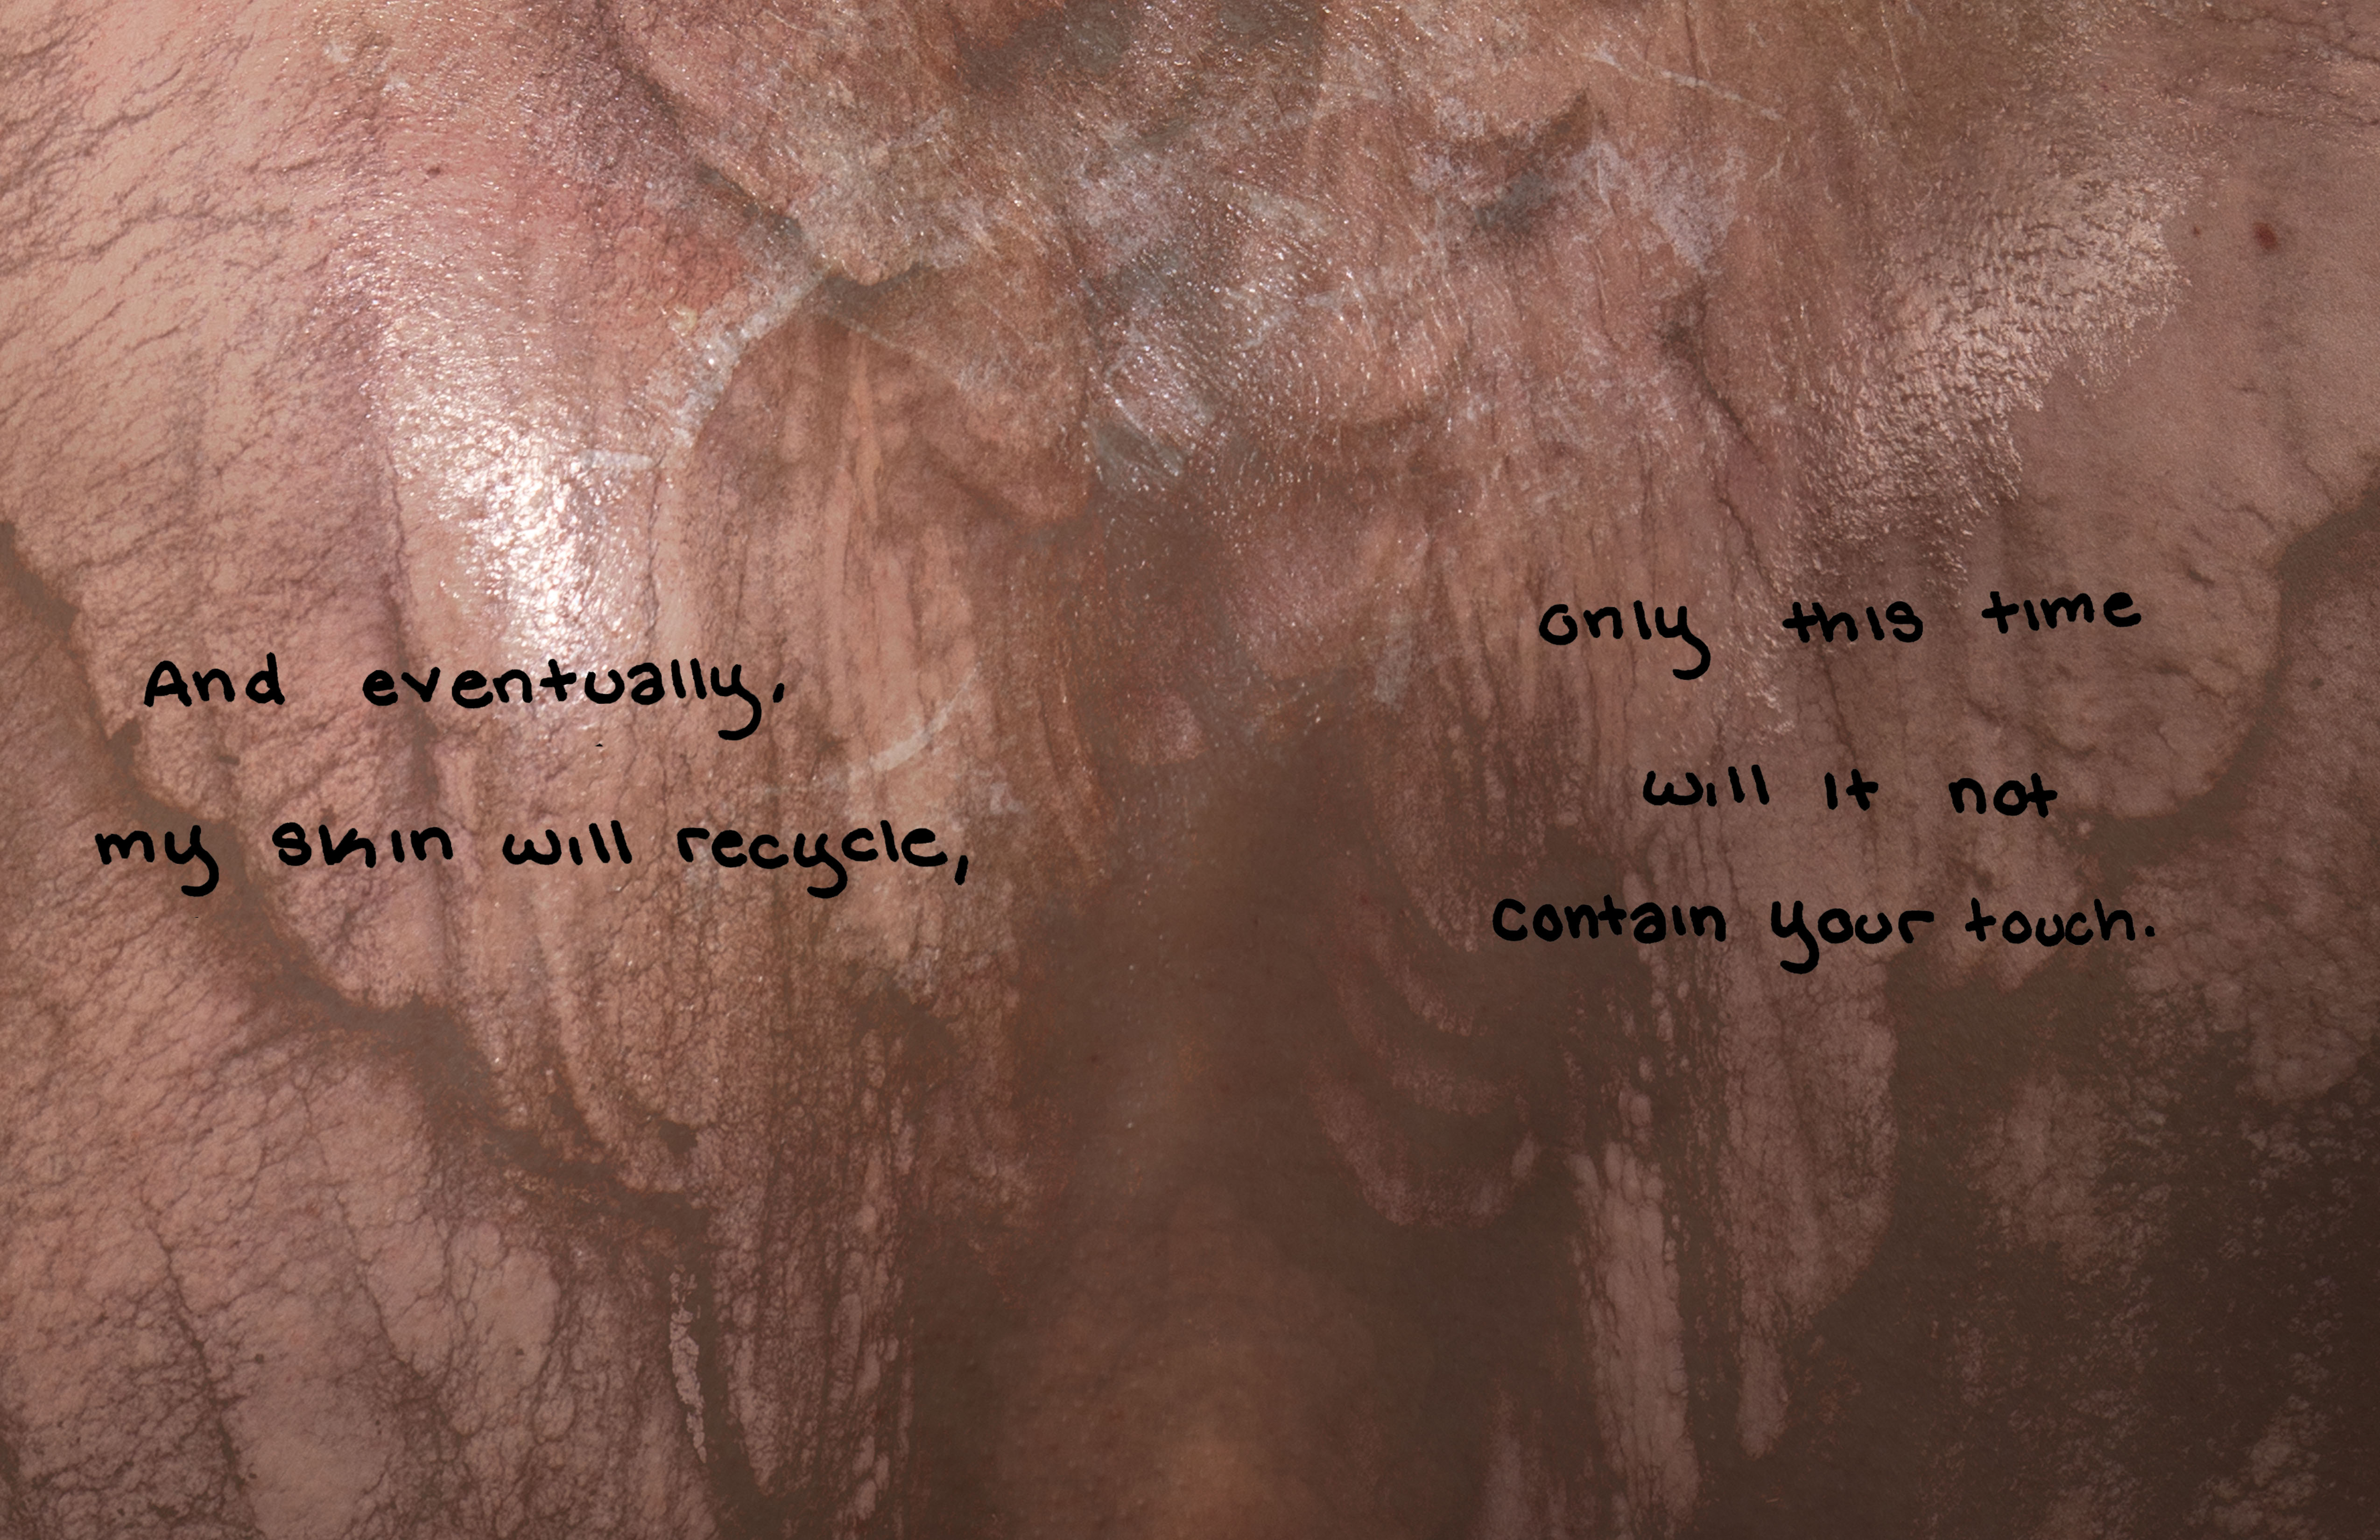 And eventually,
my skin will recycle,
only this time
will it not
contain your touch.